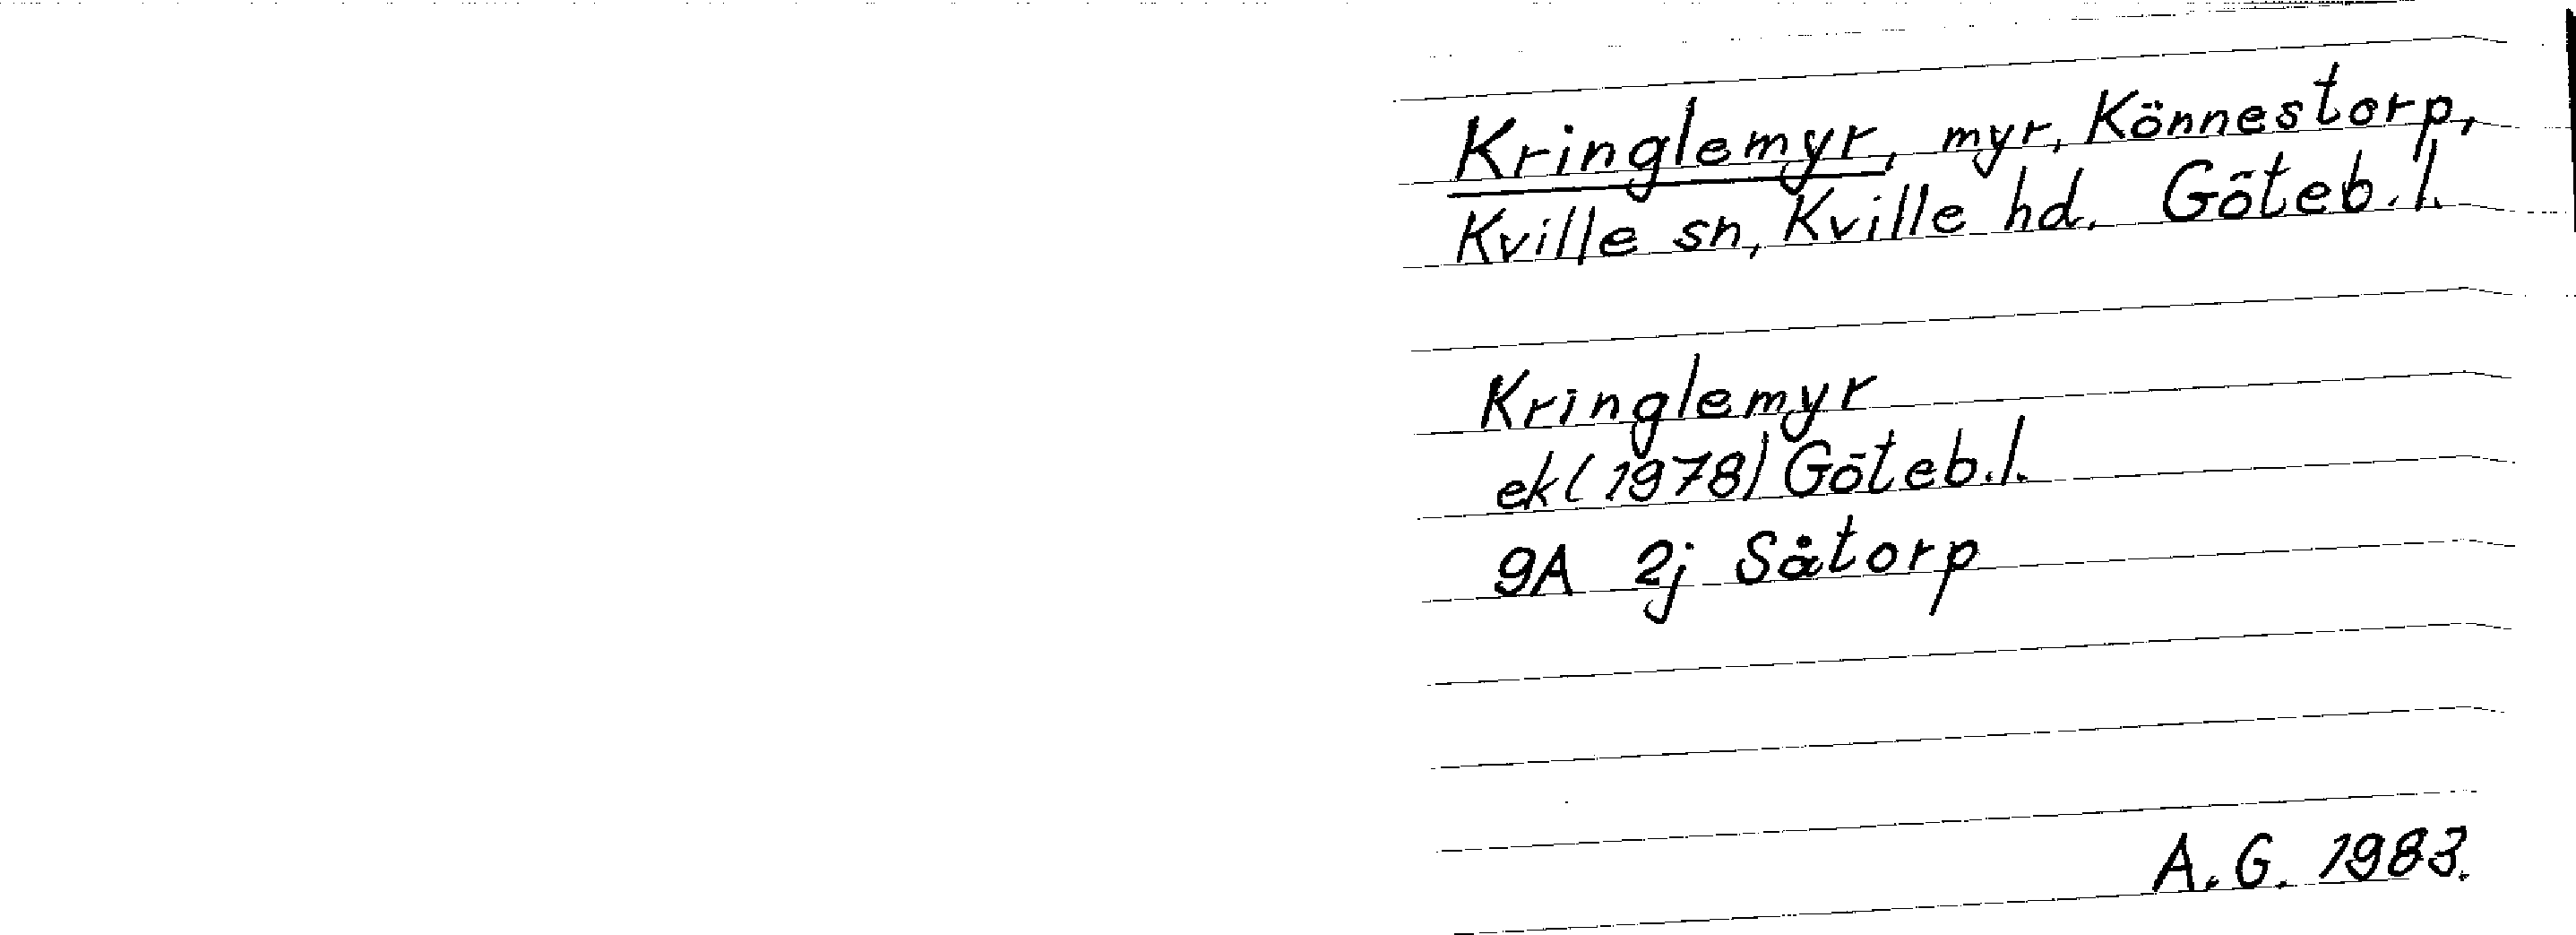 Kringlemyr, myr, Könnestorp,
Kville sn, Kville hd. Göteb.l.
Kringlemyr
ek(1978) Göteb.l.
9A 2j Såtorp
A.G. 1983.